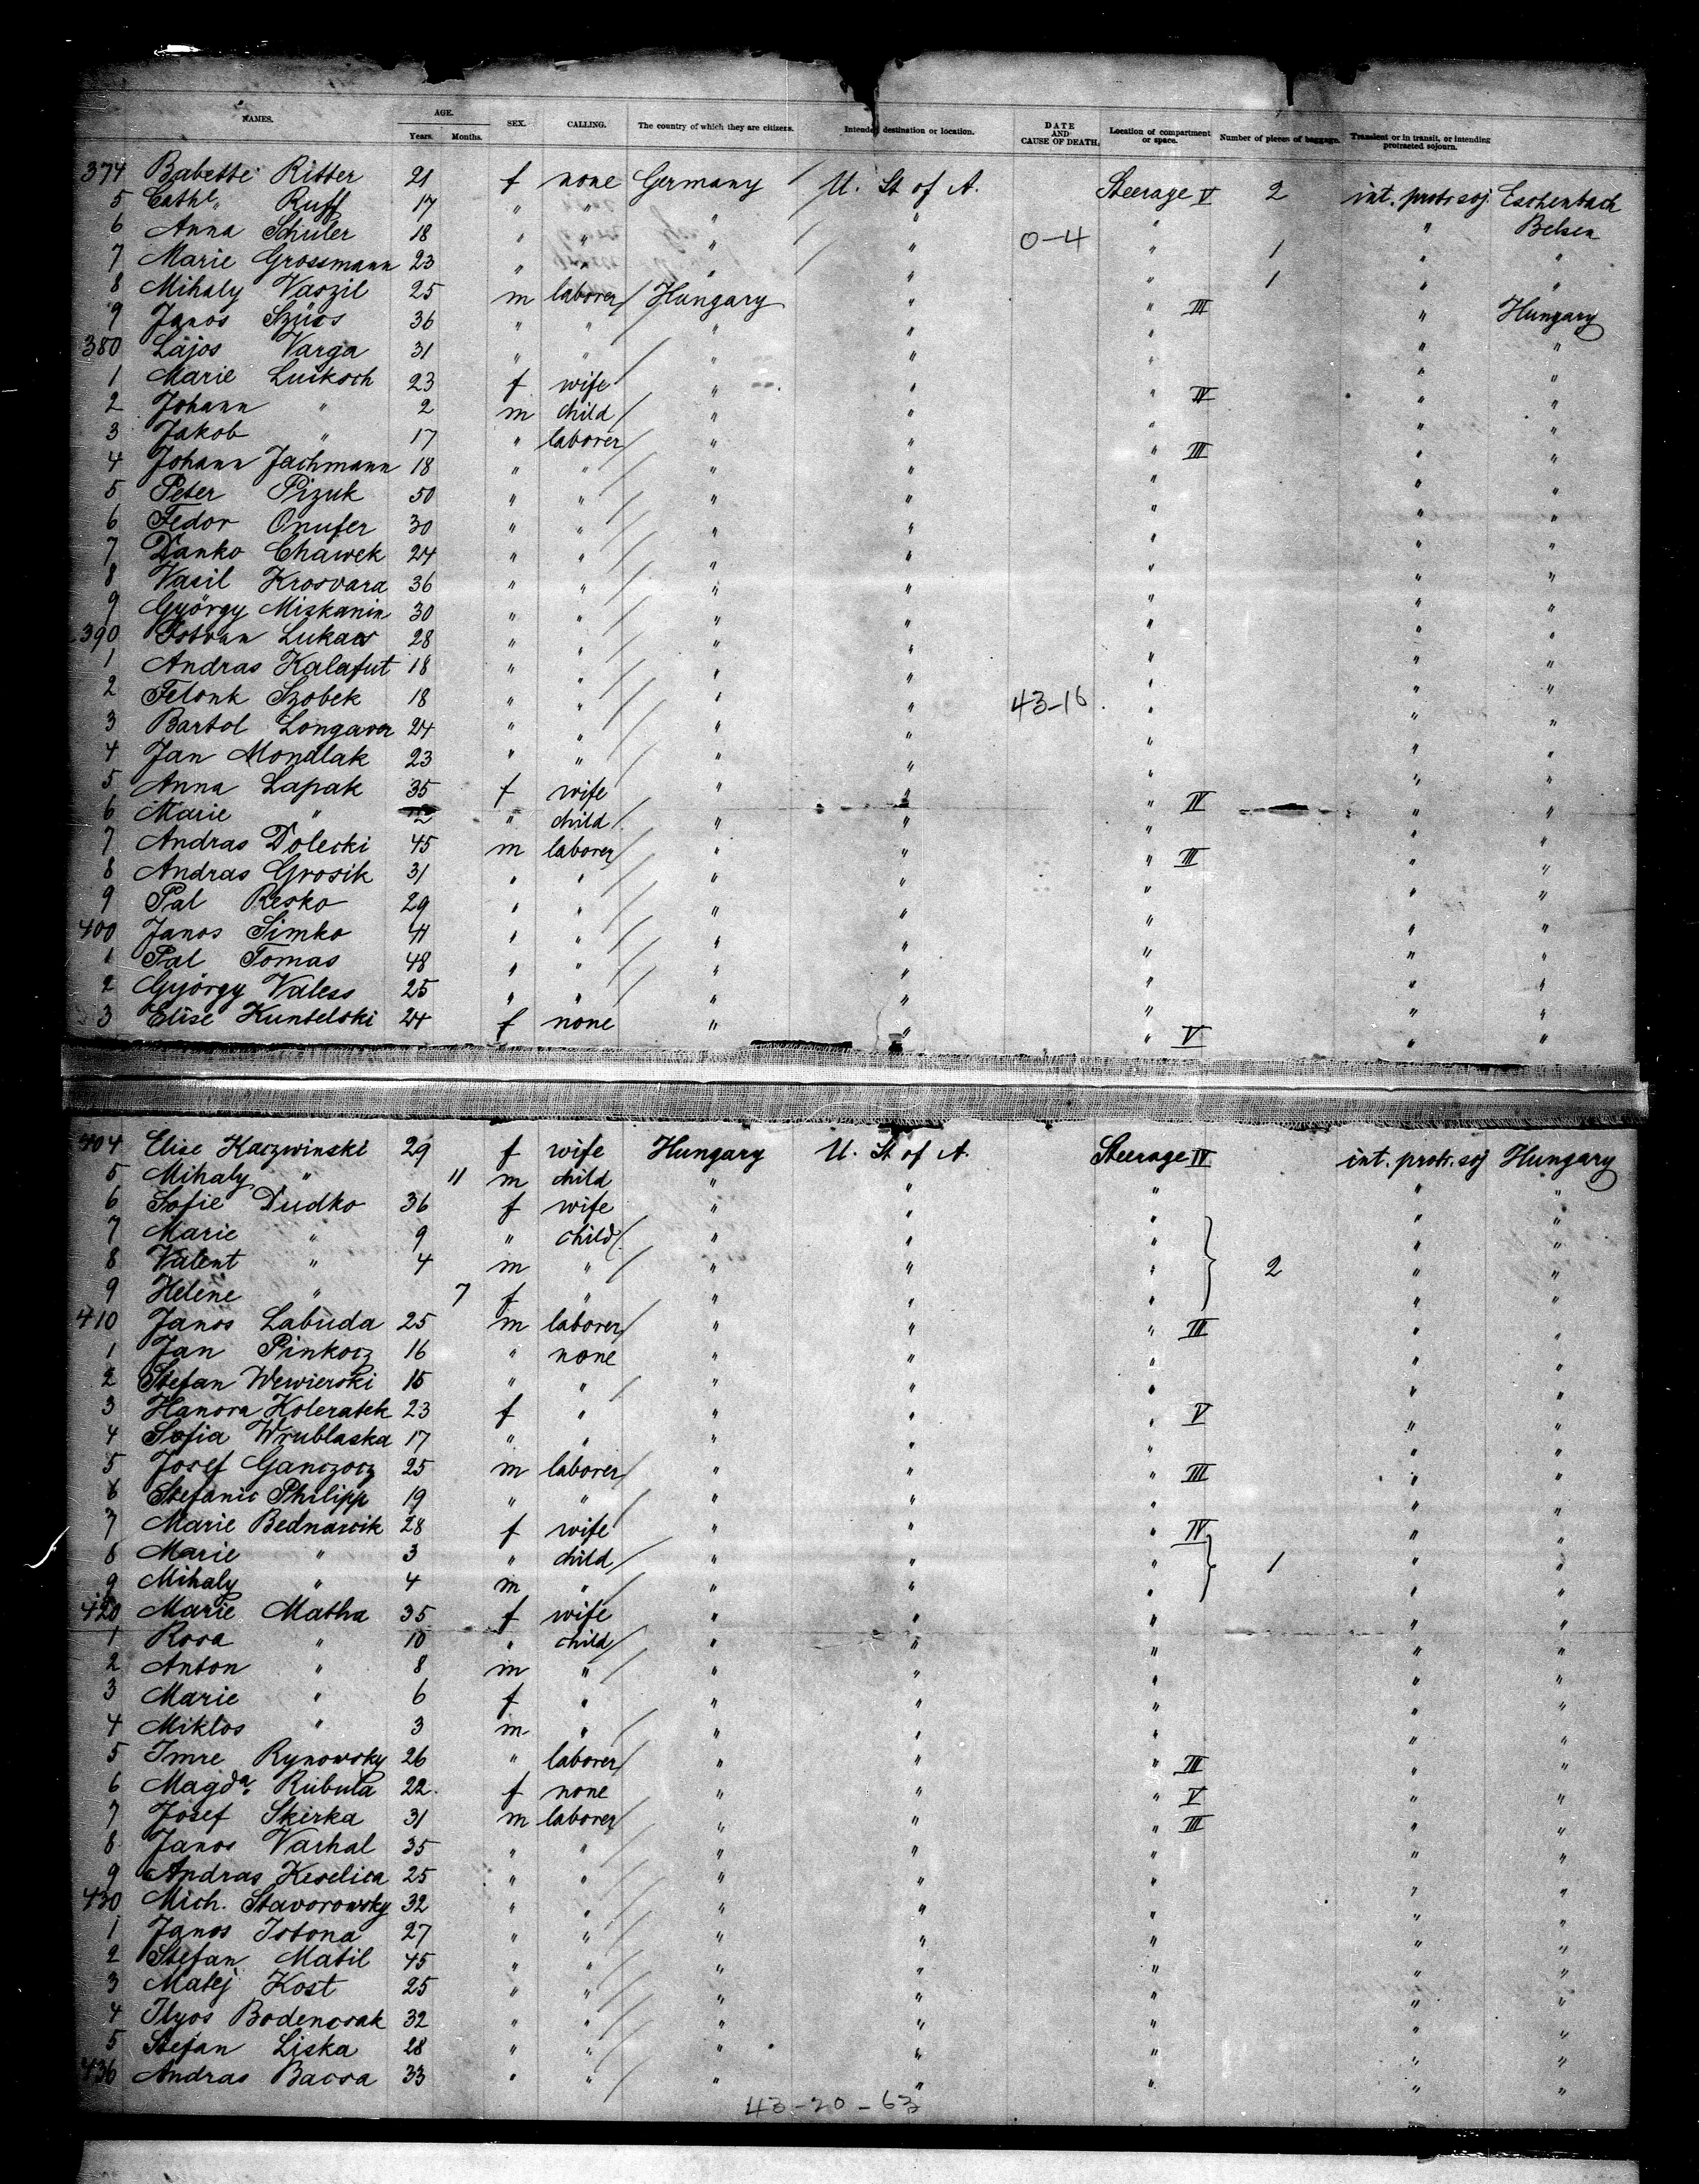 NAMES. AGE. SEX. CALLING. The country of which they are citizens. Intended destination or location. DATE AND CAUSE OF DEATH. Location of compartment or space. Number of pieces of baggage. Transient or in transit, or intending protracted sojourn.
Years. Months.
374 Babette Ritter 21 f none Germany U. St of A. Steerage V 2 int. protr. soj. Eschenbach
5 Cathe. Ruff 17 " " " " " " Belsen
6 Anna Schuler 18 " " " " 0-4 " 1 " "
7 Marie Grossmann 23 " " " " " 1 " "
8 Mihaly Vaszil 25 m laborer Hungary " " III " Hungary
9 Janos Szücs 36 " " " " " " "
380 Lajos Varga 31 " " " " " " "
1 Marie Luiksch 23 f wife " " " IV " "
2 Johann " 2 m child " " " " "
3 Jakob " 17 " laborer " " " III " "
4 Johann Jachmann 18 " " " " " " "
5 Peter Pizuk 50 " " " " " " "
6 Fedor Onufer 30 " " " " " " "
7 Danko Chawek 24 " " " " " " "
8 Vasil Krosvara 36 " " " " " " "
9 György Miskanin 30 " " " " " " "
390 Istvan Lukacs 28 " " " " " " "
1 Andras Kalafut 18 " " " " " " "
2 Felonk Szobek 18 " " " " 43-16 " " "
3 Bartol Longaver 24 " " " " " " "
4 Jan Mondlak 23 " " " " " " "
5 Anna Lapak 35 f wife " " " IV " "
6 Marie " " child " " " " "
7 Andras Dolecki 45 m laborer " " " III " "
8 Andras Grosik 31 " " " " " " "
9 Pal Resko 29 " " " " " " "
400 Janos Simko 41 " " " " " " "
1 Pal Tomas 48 " " " " " " "
2 György Valess 25 " " " " " " "
3 Elise Kuntelski 24 f none " " " V " "
404 Elise Kaczwinski 29 f wife Hungary U. St of A. Steerage IV int. protr. soj Hungary
5 Mihaly " 11 m child " " " " "
6 Sofie Dudko 36 f wife " " " " "
7 Marie " 9 " child " " " " "
8 Valent " 4 m " " " " 2 " "
9 Helene " 7 f " " " " " "
410 Janos Labuda 25 m laborer " " " III " "
1 Jan Pinkocz 16 " none " " " " "
2 Stefan Wewierski 15 " " " " " " "
3 Hanora Koleratek 23 f " " " " V " "
4 Sofia Wrublaska 17 " " " " " " "
5 Josef Ganczocz 25 m laborer " " " III " "
6 Stefanic Philipp 19 " " " " " " "
7 Marie Bednarcik 28 f wife " " " IV " "
8 Marie " 3 " child " " " 1 " "
9 Mihaly " 4 m " " " " " "
420 Marie Matha 35 f wife " " " " "
1 Rosa " 10 " child " " " " "
2 Anton " 8 m " " " " " "
3 Marie " 6 f " " " " " "
4 Miklos " 3 m " " " " " "
5 Imre Rynowsky 26 " laborer " " " III " "
6 Magda. Rubula 22 f none " " " V " "
7 Josef Skirka 31 m laborer " " " III " "
8 Janos Varhal 35 " " " " " " "
9 Andras Keselica 25 " " " " " " "
430 Mich. Stavorowsky 32 " " " " " " "
1 Janos Istona 27 " " " " " " "
2 Stefan Matil 45 " " " " " " "
3 Matej Kost 25 " " " " " " "
4 Ilyos Bodencsak 32 " " " " " " "
5 Stefan Liska 28 " " " " " " "
436 Andras Bacsa 33 " " " " " " "
43-20-63